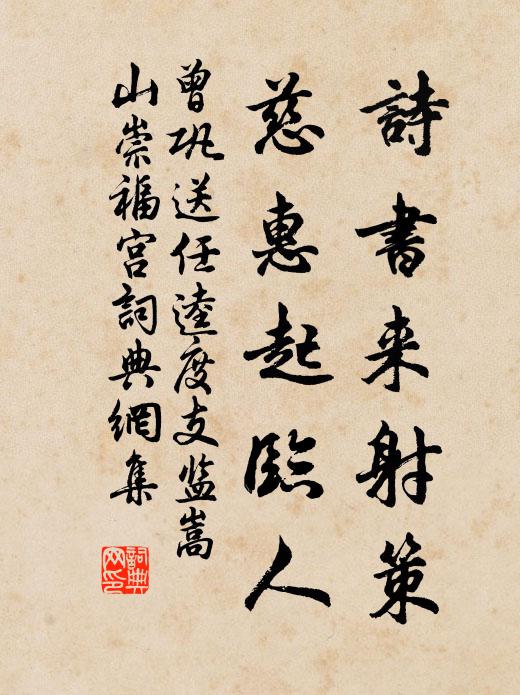 詩書来射策
慈惠起臨人
曾巩送任逵度支监嵩
山崇福宫詞典網集
詞典網印